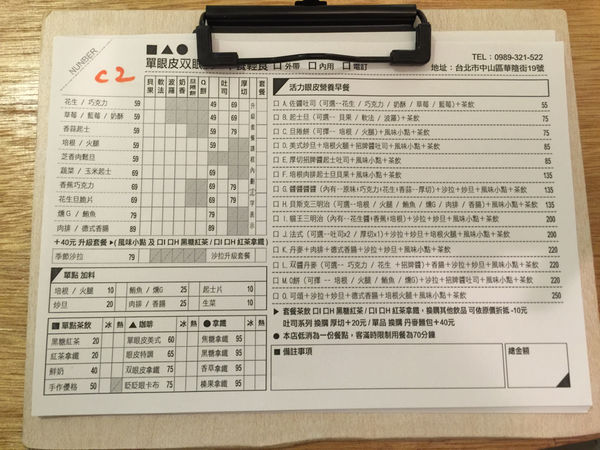 NUNBER
C2
單眼皮双眼
□外帶 □內用 □電訂
TEL：0989-321-522
地址：台北市中山區華陰街19號
貝果 軟法 波羅 奶香 旦捲餅 Q餅 吐司 厚切 套餐
花生 / 巧克力 59 49 69
草莓 / 藍莓 / 奶酥 59 49 69
香蒜起士 59 69
培根 / 火腿 59 49 69
芝香肉鬆旦 69
蔬菜 / 玉米起士 69 79
香蕉巧克力 69 79
花生旦脆片 69 79
燻G / 鮪魚 79
肉排 / 德式香腸 89
+40元 升級套餐 ▶(風味小點 及 □I□H 黑糖紅茶 / □I□H 紅茶拿鐵)
季節沙拉 79 沙拉升級套餐
■ 單點 加料
培根 / 火腿 10 鮪魚 / 燻G 25 起士片 10
炒旦 20 肉排 / 香腸 25 生菜 10
■ 單點茶飲 冰 熱 ▲ 咖啡 冰 熱 ● 拿鐵 冰 熱
黑糖紅茶 20 單眼皮美式 60 焦糖拿鐵 95
紅茶拿鐵 20 眼皮特調 65 黑糖拿鐵 95
鮮奶 40 双眼皮拿鐵 75 香草拿鐵 95
手作優格 50 眨眨眼卡布 75 榛果拿鐵 95
■ 活力眼皮營養早餐
□ A. 佐醬吐司 (可選--花生 / 巧克力 / 奶酥 / 草莓 / 藍莓)+茶飲 55
□ B. 起士旦 (可選-- 貝果 / 軟法 / 波羅)+茶飲 75
□ C. 旦捲餅 (可擇-- 培根 / 火腿)+風味小點+茶飲 75
□ D. 美式炒旦+培根+火腿+招牌醬吐司+風味小點+茶飲 85
□ E. 厚切招牌醬起士吐司+風味小點+茶飲
□ F. 培根肉排起士旦貝果+風味小點+茶飲 135
□ G. 醬醬醬醬 (內有--原味+巧克力+花生+香蒜--厚切)+沙拉+炒旦+風味小點+茶飲 135
□ H. 貝斯克三明治 (可選--培根 / 火腿 / 鮪魚 / 燻G / 肉排 / 香腸)+風味小點+茶飲 135
□ I. 貓王三明治 (內有--花生醬+香蕉+培根)+沙拉+炒旦+風味小點+茶飲 200
□ J. 法式 (可選--吐司x2 / 厚切x1)+沙拉+炒旦+培根+風味小點+茶飲 200
□ K. 丹麥+肉排+德式香腸+沙拉+炒旦+風味小點+茶飲 220
□ L. 双醬丹麥 (可選-- 巧克力 / 花生 +招牌醬)+香腸+沙拉+炒旦+風味小點+茶飲 220
□ M. Q餅 (可擇 -- 培根 / 火腿 / 鮪魚 / 燻G)+沙拉+炒旦+風味小點+茶飲 200
□ O. 可頌+沙拉+炒旦+德式香腸+培根+火腿+風味小點+茶飲 250
▶ 套餐茶飲 □I□H 黑糖紅茶 / □I□H 紅茶拿鐵，換購其他飲品 可依原價折抵 -10元
吐司系列 換購 厚切+20元 / 單品 換購 丹麥麵包+40元
● 本店低消為一份餐點，客滿時限制用餐為70分鐘
■ 備註事項
總金額